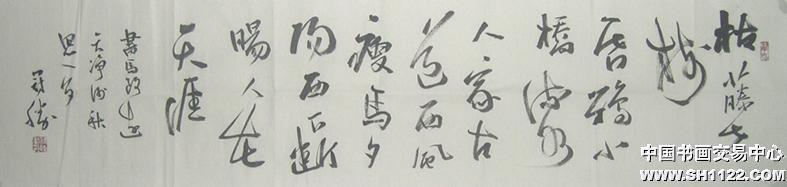 枯藤老
樹
昏鴉小
橋流水
人家古
道西風
瘦馬夕
陽西下断
腸人在
天涯
書馬致遠
天净沙秋
思一首
中国书画交易中心
www.SH1122.com